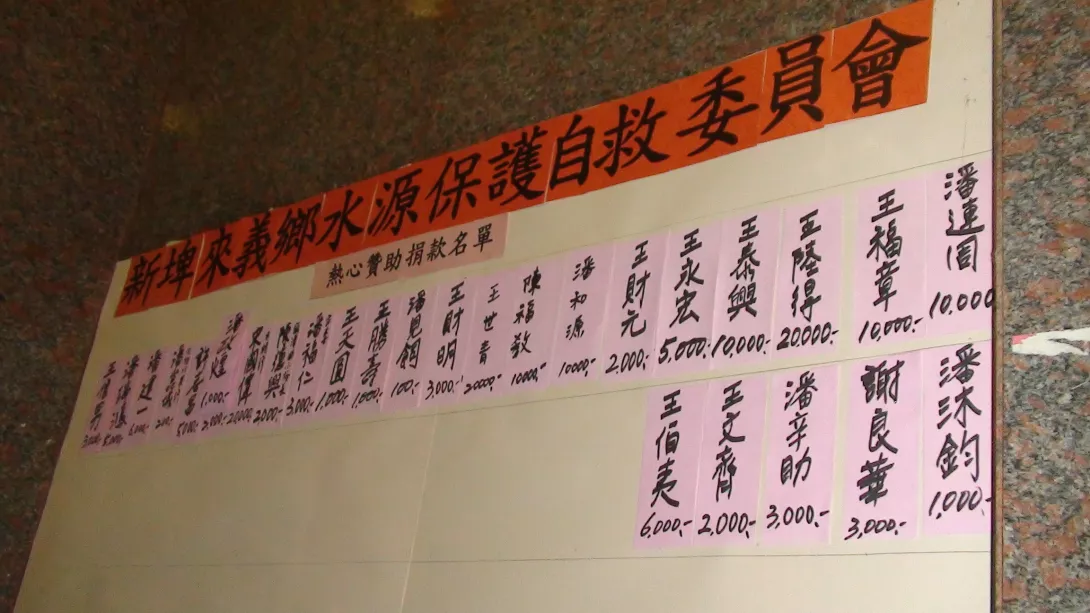 新埤來義鄉水源保護自救委員會
熱心贊助捐款名單
潘連圓 10,000
王福章 10,000.-
王陸得 20000.-
王泰興 10,000.-
王永宏 5,000.-
王財元 2,000.-
潘和源 10000.-
陳福敬 10000.-
王世青 2000.-
王財明 3,000.-
潘恩鉰 100.-
王勝壽 1,000.-
王天圓 1,000.-
潘福仁 3,000.-
2,000.-
1,000.-
潘建一
潘沐鈞 1,000.-
謝良華 3,000.-
潘辛助 3,000.-
王文齊 2,000.-
王伯夷 6,000.-